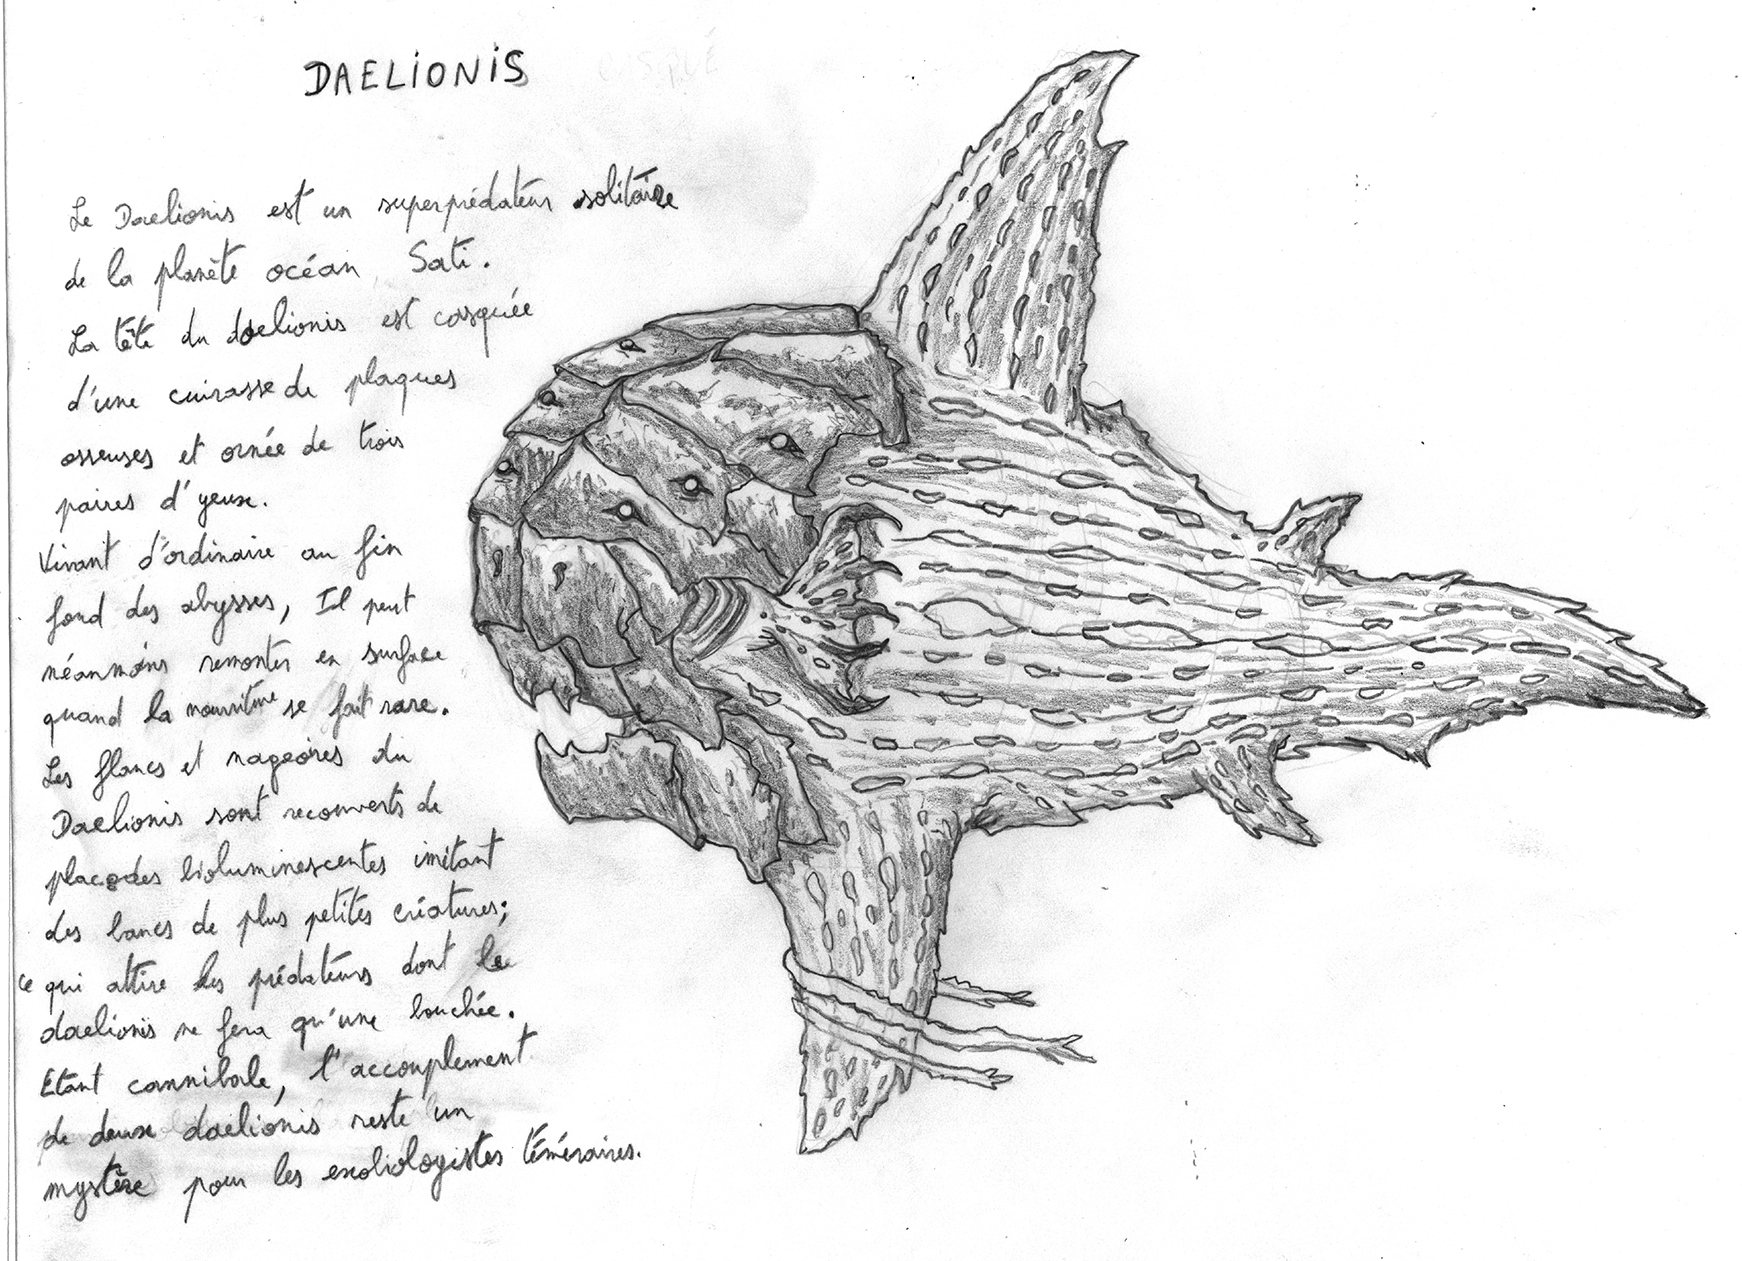 DAELIONIS
Le Daelionis est un superprédateur solitaire
de la planète océan Sati.
La tête du daelionis est casquée
d'une cuirasse de plaques
osseuses et ornée de trois
paires d'yeux.
Vivant d'ordinaire au fin
fond des abysses, Il peut
néanmoins remonter en surface
quand la nourriture se fait rare.
Les flancs et nageoires du
Daelionis sont recouverts de
placodes bioluminescentes imitant
des bancs de plus petites créatures;
ce qui attire les prédateurs dont le
daelionis ne fera qu'une bouchée.
Etant cannibale, l'accouplement
de deux daelionis reste un
mystère pour les exobiologistes téméraires.